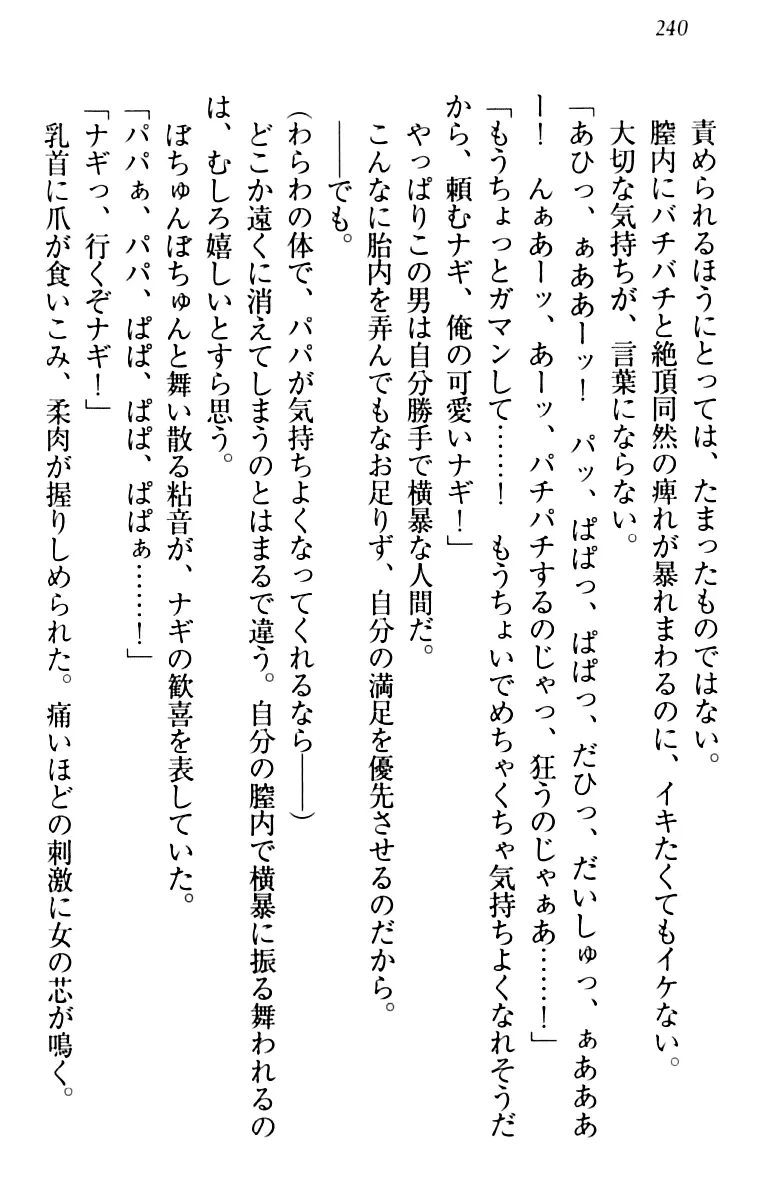 240
責められるほうにとっては、たまったものではない。
膣内にバチバチと絶頂同然の痺れが暴れまわるのに、イキたくてもイケない。
大切な気持ちが、言葉にならない。
「あひっ、ぁああーッ！　パッ、ぱぱっ、ぱぱっ、だひっ、だいしゅっ、ぁあああ
ー！　んぁあーッ、あーッ、パチパチするのじゃっ、狂うのじゃぁあ……！」
「もうちょっとガマンして……！　もうちょいでめちゃくちゃ気持ちよくなれそうだ
から、頼むナギ、俺の可愛いナギ！」
やっぱりこの男は自分勝手で横暴な人間だ。
こんなに胎内を弄んでもなお足りず、自分の満足を優先させるのだから。
――でも。
（わらわの体で、パパが気持ちよくなってくれるなら――）
どこか遠くに消えてしまうのとはまるで違う。自分の膣内で横暴に振る舞われるの
は、むしろ嬉しいとすら思う。
ぼちゅんぼちゅんと舞い散る粘音が、ナギの歓喜を表していた。
「パパぁ、パパ、ぱぱ、ぱぱ、ぱぱぁ……！」
「ナギっ、行くぞナギ！」
乳首に爪が食いこみ、柔肉が握りしめられた。痛いほどの刺激に女の芯が鳴く。